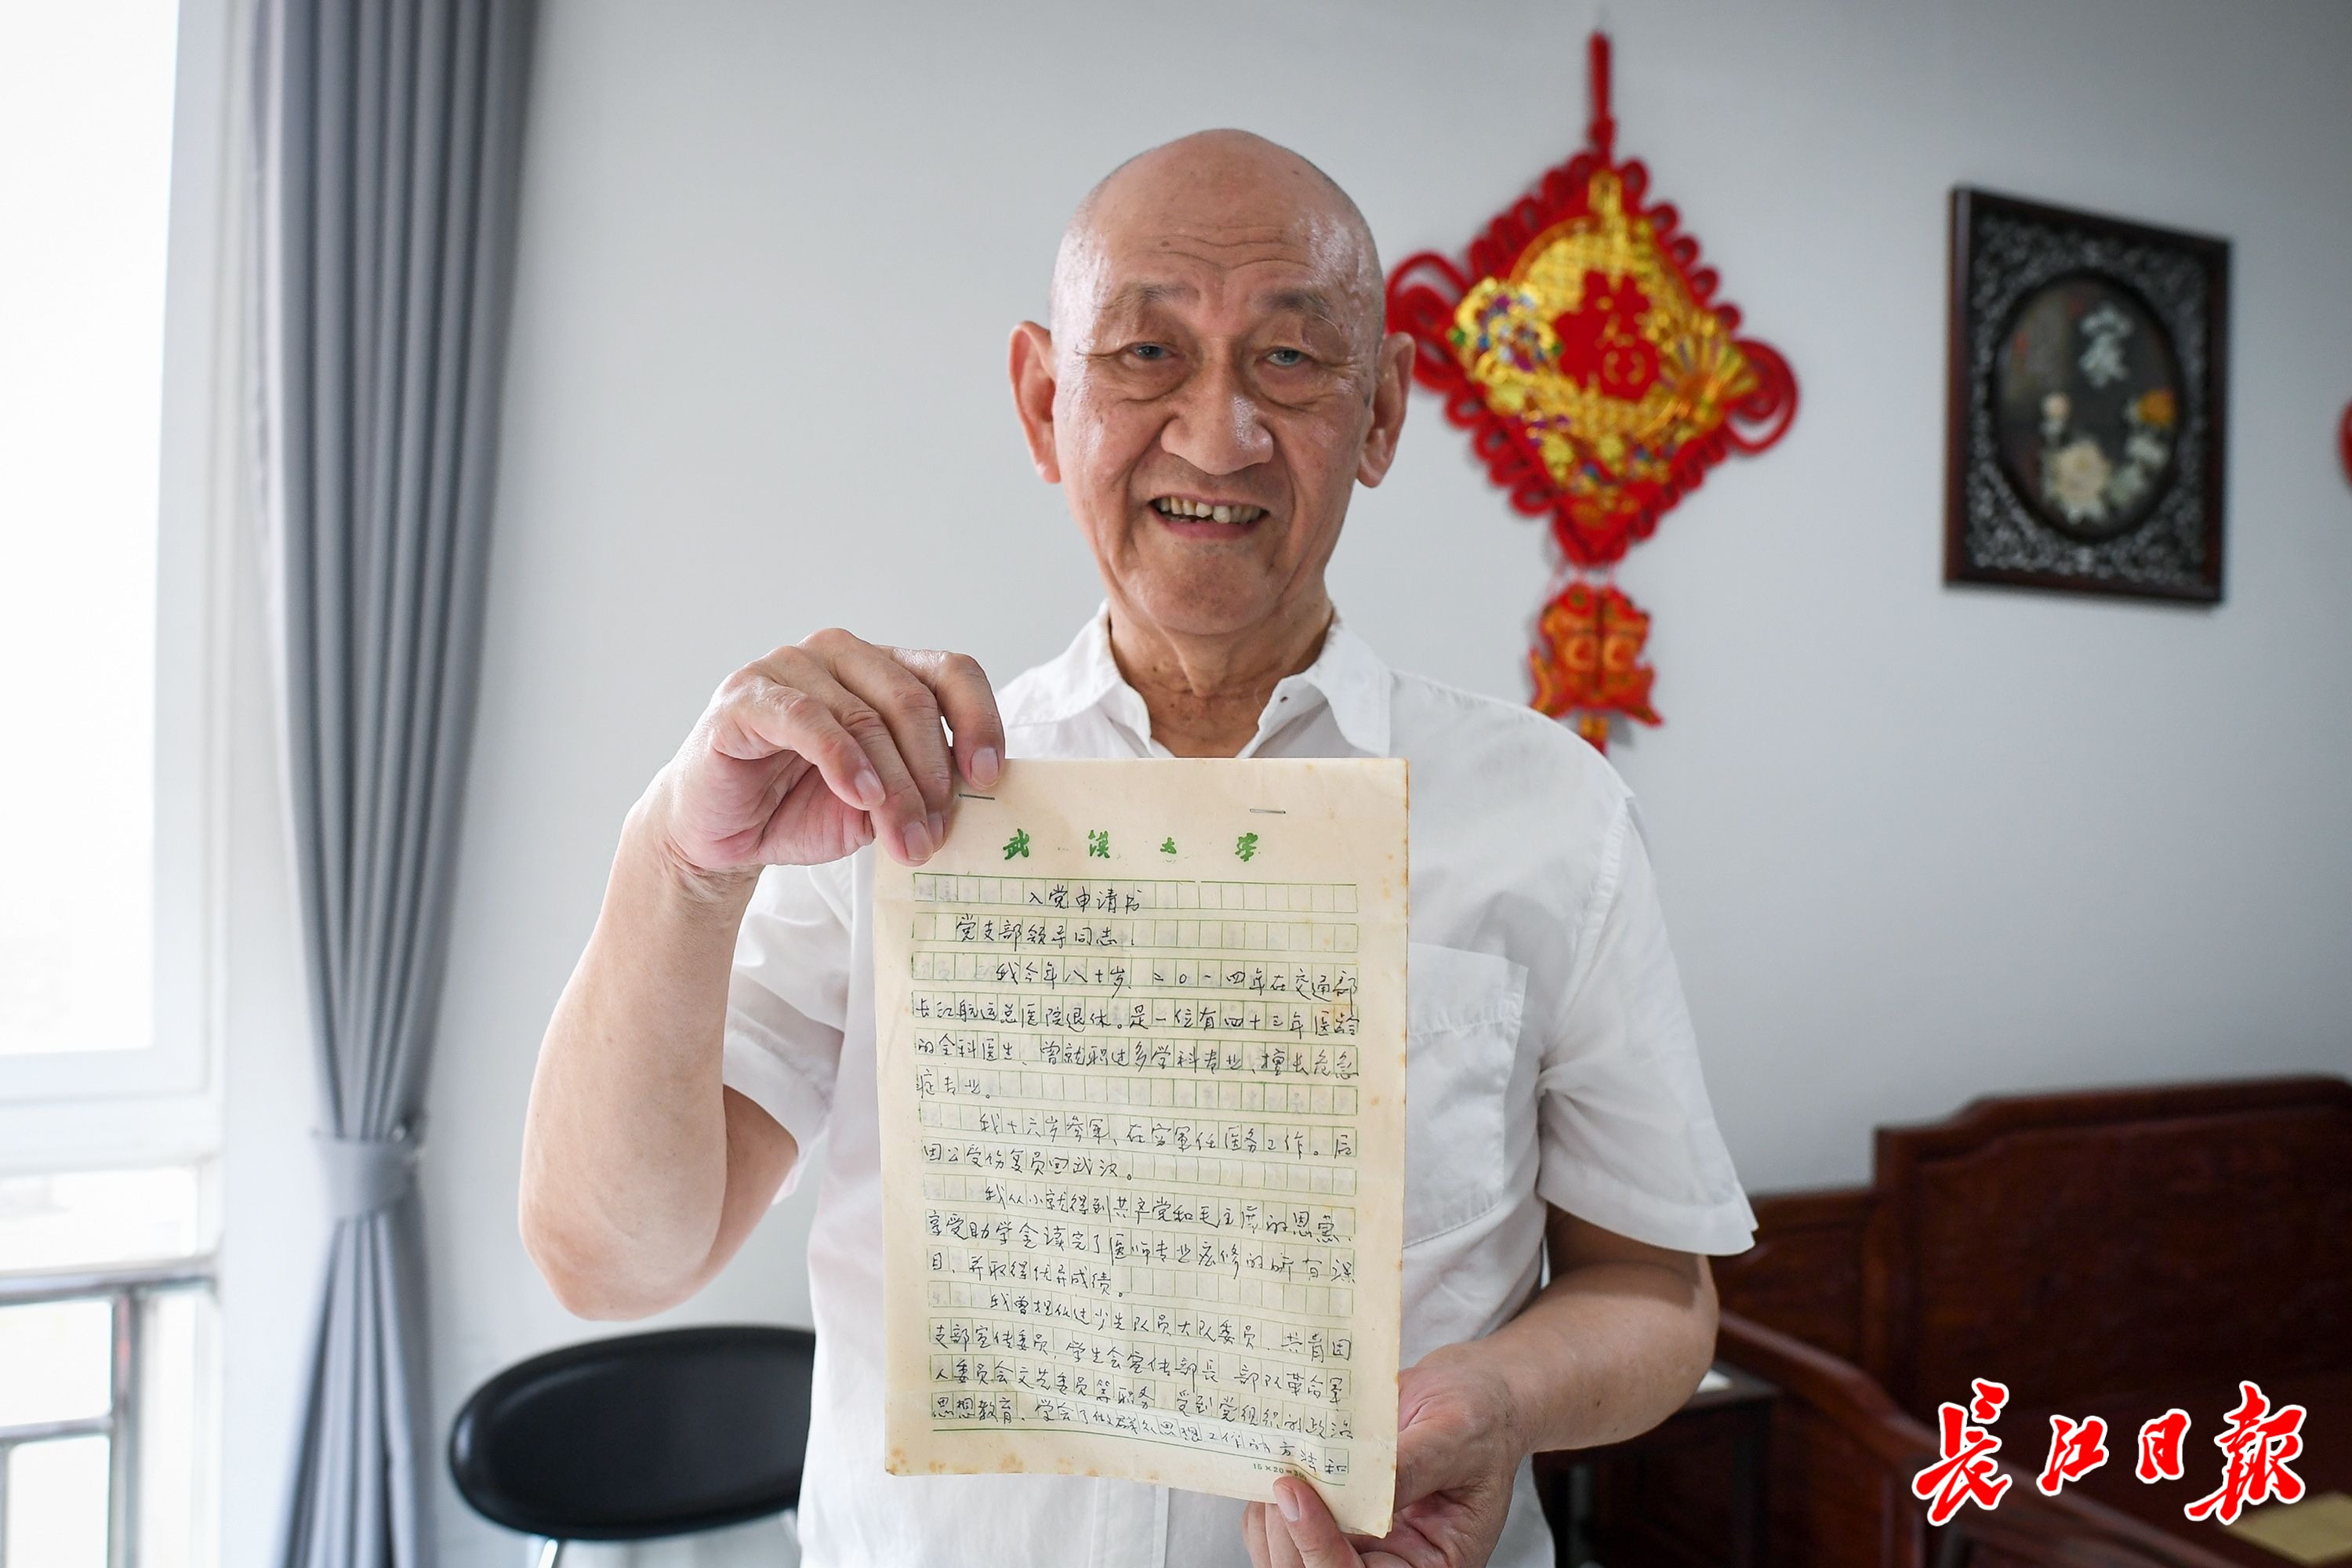 福
家
武汉大学
入党申请书
党支部领导同志:
我今年八十岁、二0一四年在交通部
长江航运总医院退休。是一位有四十三年医龄
的全科医生、曾就职过多学科专业、擅长危急
症专业。
我十六岁参军、在空军任医务工作。后
因公受伤复员回武汉。
我从小就得到共产党和毛主席的恩惠、
享受助学金读完了医师专业应修的所有课
目、并取得优异成绩。
我曾担任过少先队员大队委员、共青团
支部宣传委员,学生会宣传部长、部队革命军
人委员会文艺委员等职务、受到党组织的政治
思想教育、学会了做群众思想工作的方法和
15×20=300
长江日报